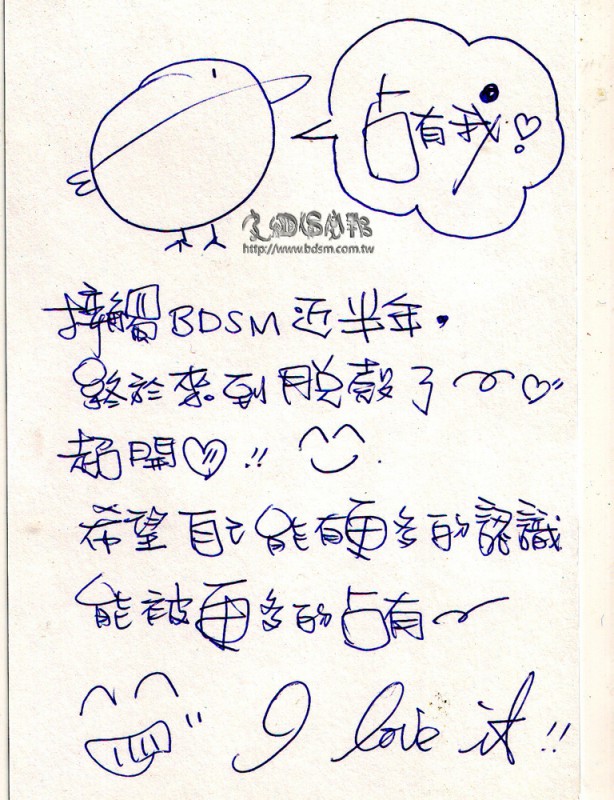 占有我!
http://www.bdsm.com.tw
接觸BDSM近半年,
終於來到脫殼了~♡"
超開♡!!
希望自己能有更多的認識
能被更多的占有~
" I love it!!